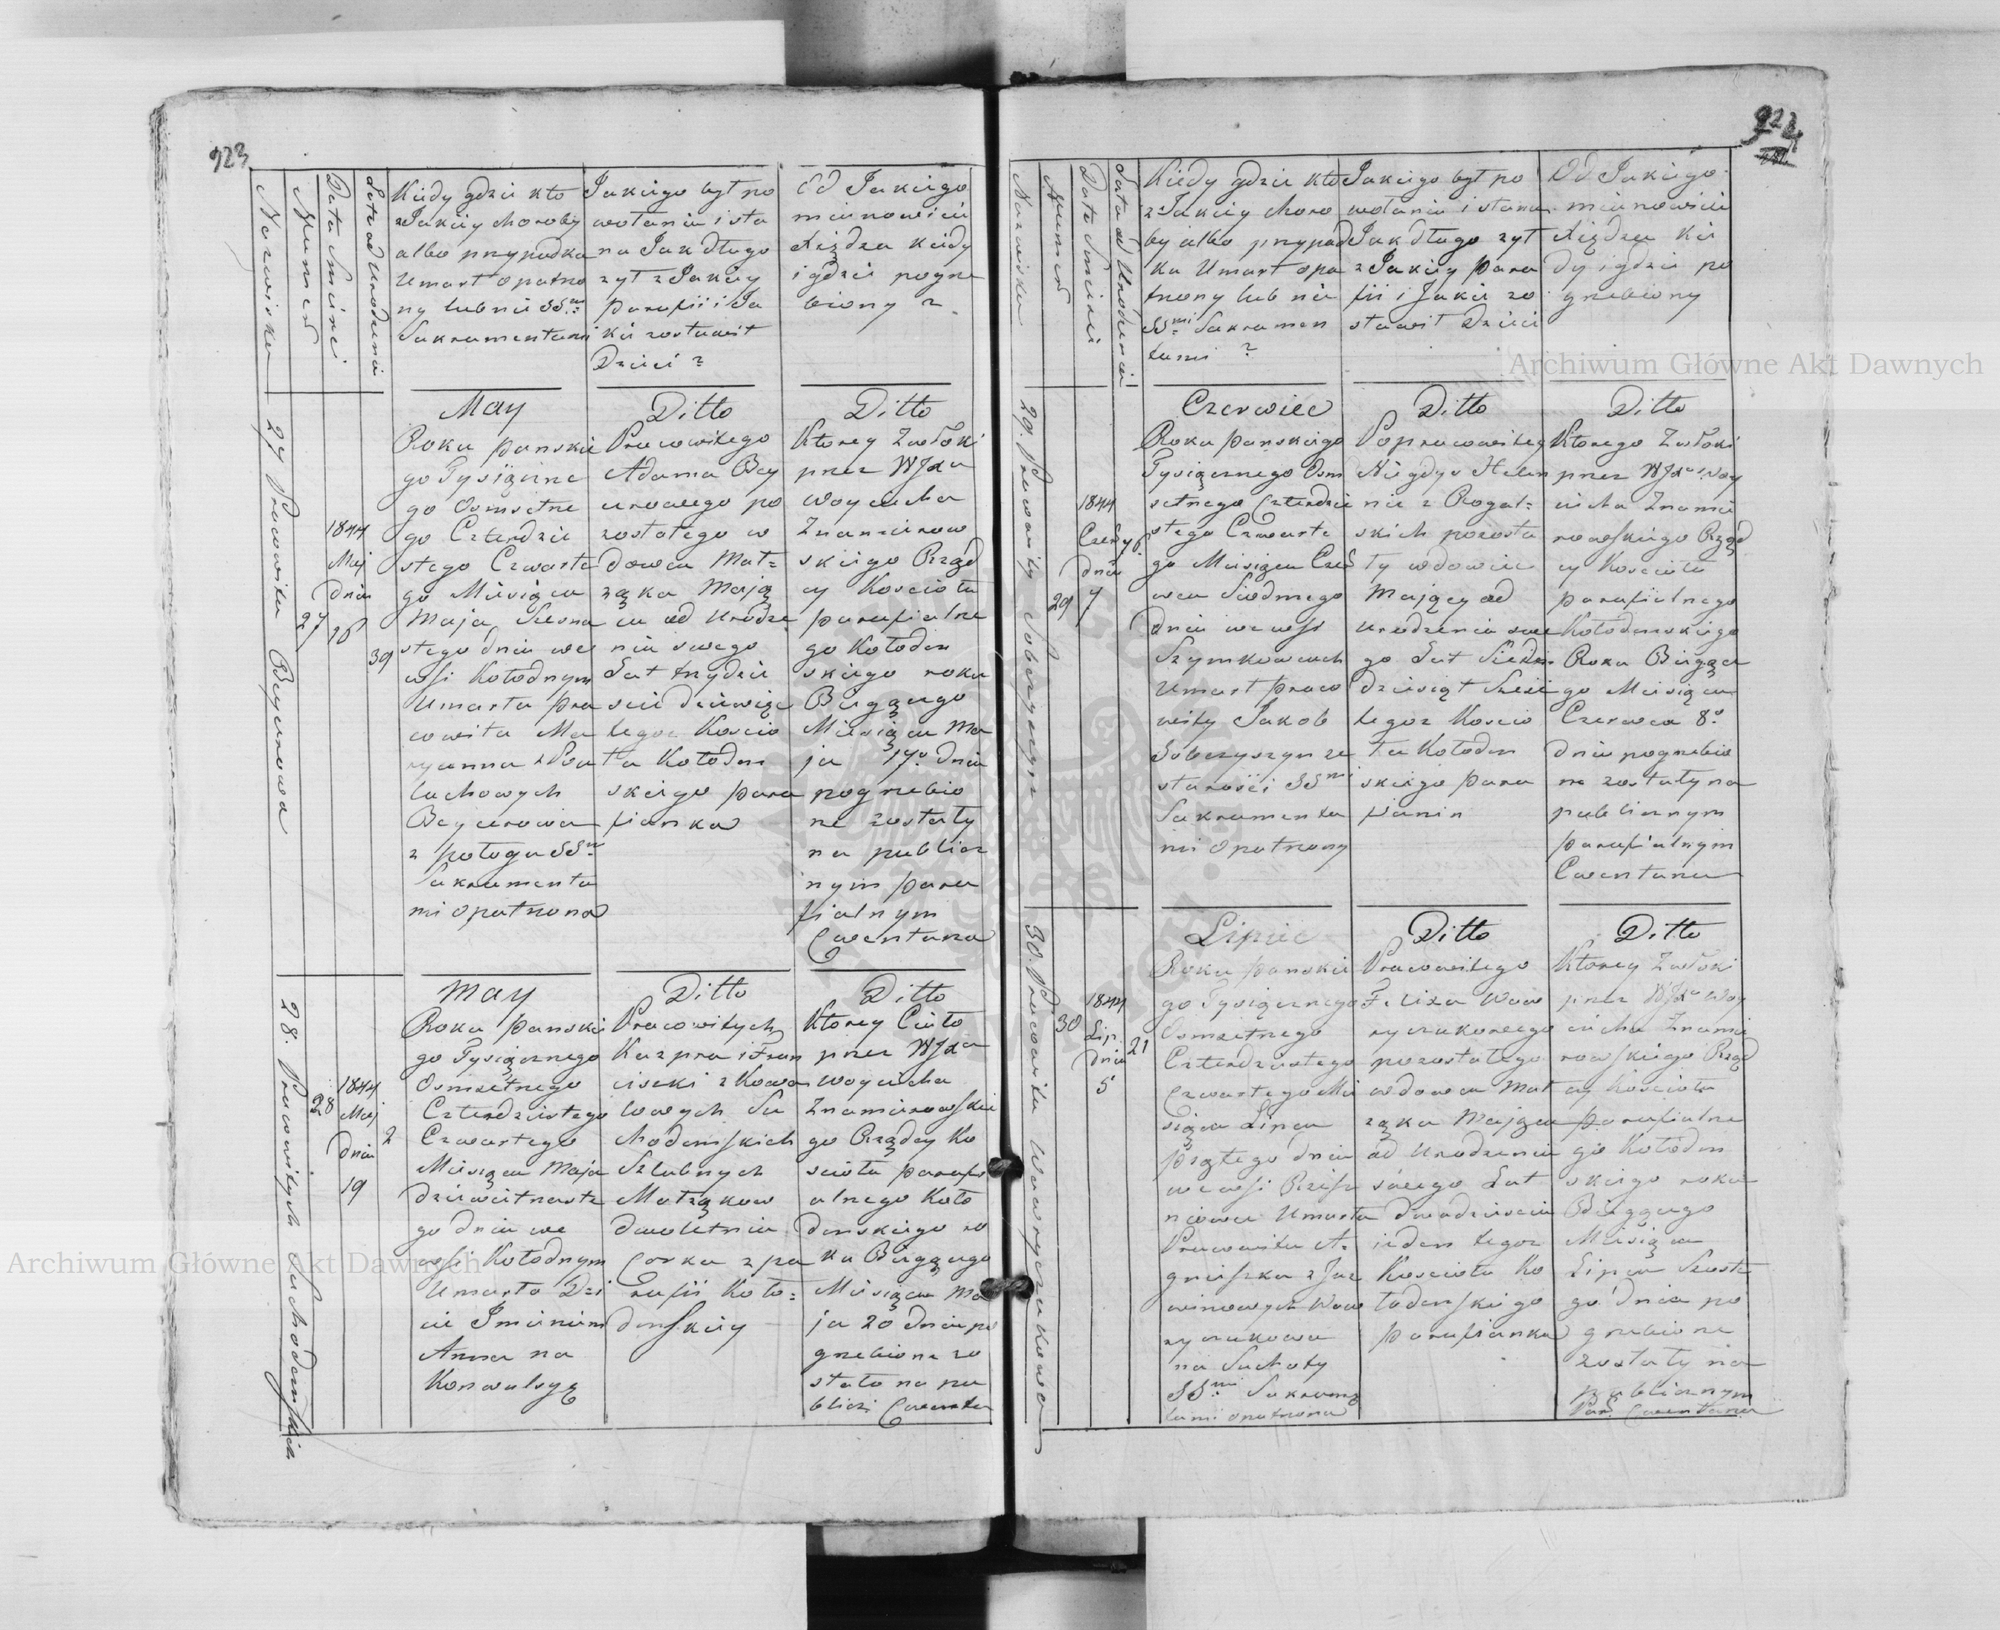 923
Nazwisko
Numer
Data Śmierci
Lata od Urodzenia
Kiedy gdzie kto
z Jakiey choroby
albo przypadku
Umarł opatrzo
ny lub nie SSmi
Sakramentami
Jakiego był po
wołania i sta
nu Jak długo
żył z Jakiey
Parafii i Ja
kie zostawił
Dzieci ?
Od Jakiego
mianowicie
Xiędza kiedy
i gdzie pogrze
biony ?
27 Pracowita Beyerowa
27
1844
Maj
dnia
16
39
May
Roku Pańskie
go Tysiączne
go Osmsetne
go Czterdzie
stego Czwarte
go Miesiąca
Maja Szesna
stego dnia we
wsi Kołodnym
Umarła Pra
cowita Ma
ryanna z
luchowych
Beyerowa
z połogu SSmi
Sakramenta
mi opatrzona
Ditto
Pracowitego
Adama Bey
erowego po
zostałego w
dowca Mał=
żąka Mają
ca od Urodze
nia swego
Lat trzydzie
ści dziewięć
tegoż Kościo
ła Kołoden
skiego Para
fianka
Ditto
Ktorey Zwłoki
przez WJXa
Woyciecha
Znamierow
skiego Rządz
cy Kościoła
parafialne
go Kołoden
skiego roku
Bieżącego
Miesiąca Ma
ja 17o dnia
pogrzebio
ne zostały
na publicz
nym Para
fialnym
Cmentarzu
28. Pracowitych Suchodolskich
28
1844
Maj
dnia
19
2
May
Roku Pańskie
go Tysiącznego
Osmsetnego
Czterdziestego
Czwartego
Miesiąca Maja
dziewietnaste
go dnia we
wsi Kołodnym
Umarło Dzie
cie Imieniem
Anna na
Konwulsyę
Ditto
Pracowitych
Kazpra i Fran
ciszki z Kowa
lowych Su
chodolskich
Szlubnych
Małżąkow
dwoletnia
Corka z pa
rafii Koło=
denskiey
Ditto
Ktorey Ciało
przez WJXa
Woyciecha
Znamierowskie
go Rządcy Ko
ścioła parafi
alnego Koło
denskiego ro
ku Bieżącego
Miesiąca Ma
ja 20 dnia po
grzebione zo
stało na pu
blicz Cmenta
924
Nazwisko
Numer
Data Śmierci
Lata od Urodzenia
Kiedy gdzie kto
z Jakiey choro
by albo przypad
ku Umarł opa
trzony lub nie
SSmi Sakramen
tami ?
Jakiego był po
wołania i stanu
Jak długo żył
z Jakiey Para
fii i Jakie zo
stawił Dzieci
Od Jakiego
mianowicie
Xiędza kie
dy i gdzie po
grzebiony
29. Pracowity Soberzyszyn
29
1844
Czerw
dnia
7
76
Czerwiec
Roku Pańskiego
Tysiącznego Osm
setnego Czterdzie
stego Czwarte
go Miesiąca Czer
wca Siodmego
dnia we wsi
Szymkowcach
Umarł Praco
wity Jakob
Soberzyszyn ze
starości SSmi
Sakramenta
mi opatrzony
Ditto
Po pracowitey
Niegdys Helen
nie z Rogal=
skich pozosta
ły wdowiec
Mający od
Urodzenia swe
go Lat Siedm
dziesiąt Sześć
tegoż Kościo
ła Kołoden
skiego Para
fianin
Ditto
Ktorego Zwłoki
przez WJXa Woy
ciecha Znamie
rowskiego Rządz
cy Kościoła
parafialnego
Kołodenskiego
Roku Bieżące
go Miesiąca
Czerwca 8o
dnia pogrzebio
ne zostały na
publicznym
parafialnym
Cmentarzu
30. Pracowita Wawryczukowa
30
1844
Lip.
dnia
5
21
Lipiec
Roku Pańskie
go Tysiącznego
Osmsetnego
Czterdziestego
Czwartego Mie
siąca Lipca
Piątego dnia
we wsi
Umarła
Pracowita A=
gniszka z Jac
winowych Waw
ryczukowa
na Suchoty
SSmi Sakramę
tami opatrzona
Ditto
Pracowitego
Felixa Waw
ryczukowego
pozostałego
wdowca Mał
żąka Mająca
od Urodzenia
swego Lat
dwadzieścia
ieden tegoż
Kościoła Ko
łodenskiego
parafianka
Ditto
Ktorey Zwłoki
przez WJXa Woy
ciecha Znamie
rowskiego Rządz
cy Kościoła
parafialne
go Kołoden
skiego roku
Bieżącego
Miesiąca
Lipca Szoste
go dnia po
grzebione
zostały na
publicznym
Par. Cmentarzu
Archiwum Główne Akt Dawnych
Archiwum Główne Akt Dawnych
Archiwum Główne Akt Dawnych